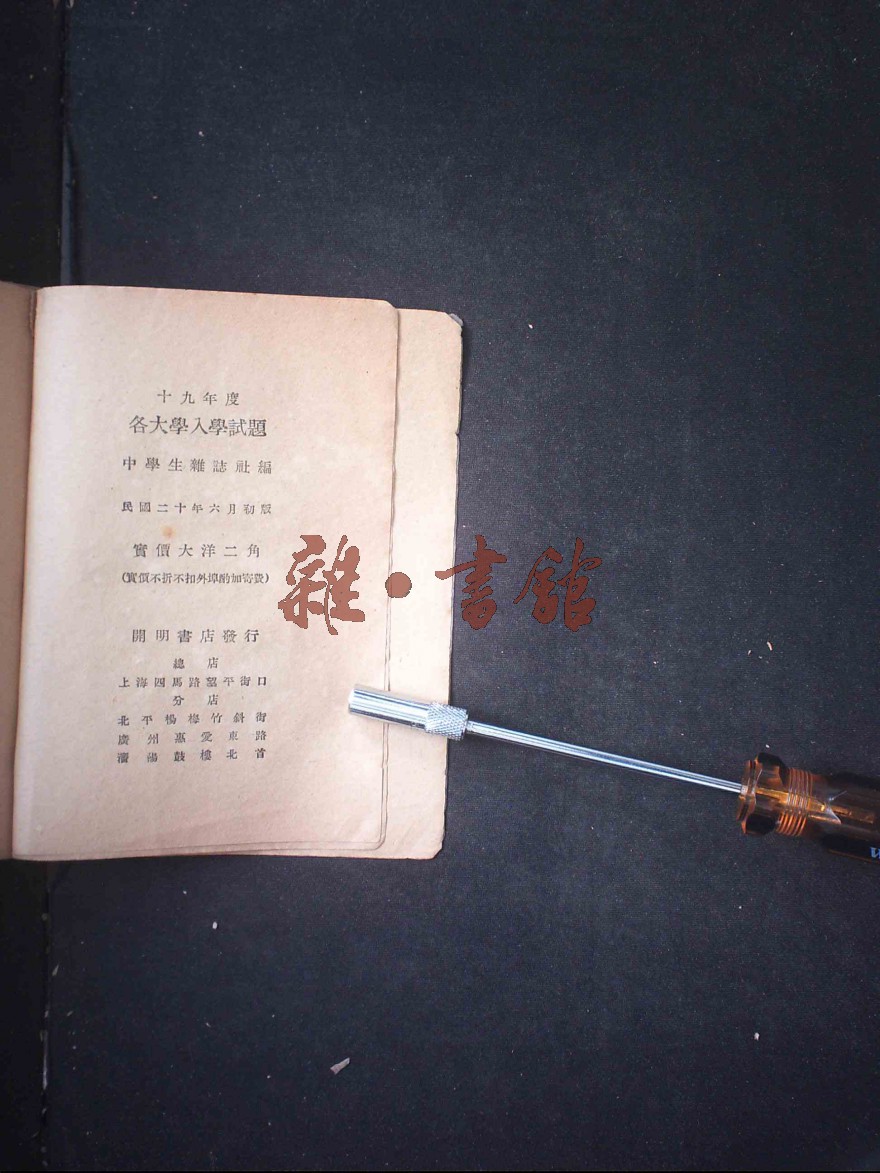 十九年度
各大學入學試題
中學生雜誌社編
民國二十年六月初版
實價大洋二角
(實價不折不扣外埠酌加寄費)
雜·書館
開明書店發行
總店
上海四馬路望平街口
分店
北平楊梅竹斜街
廣州惠愛東路
瀋陽鼓樓北首